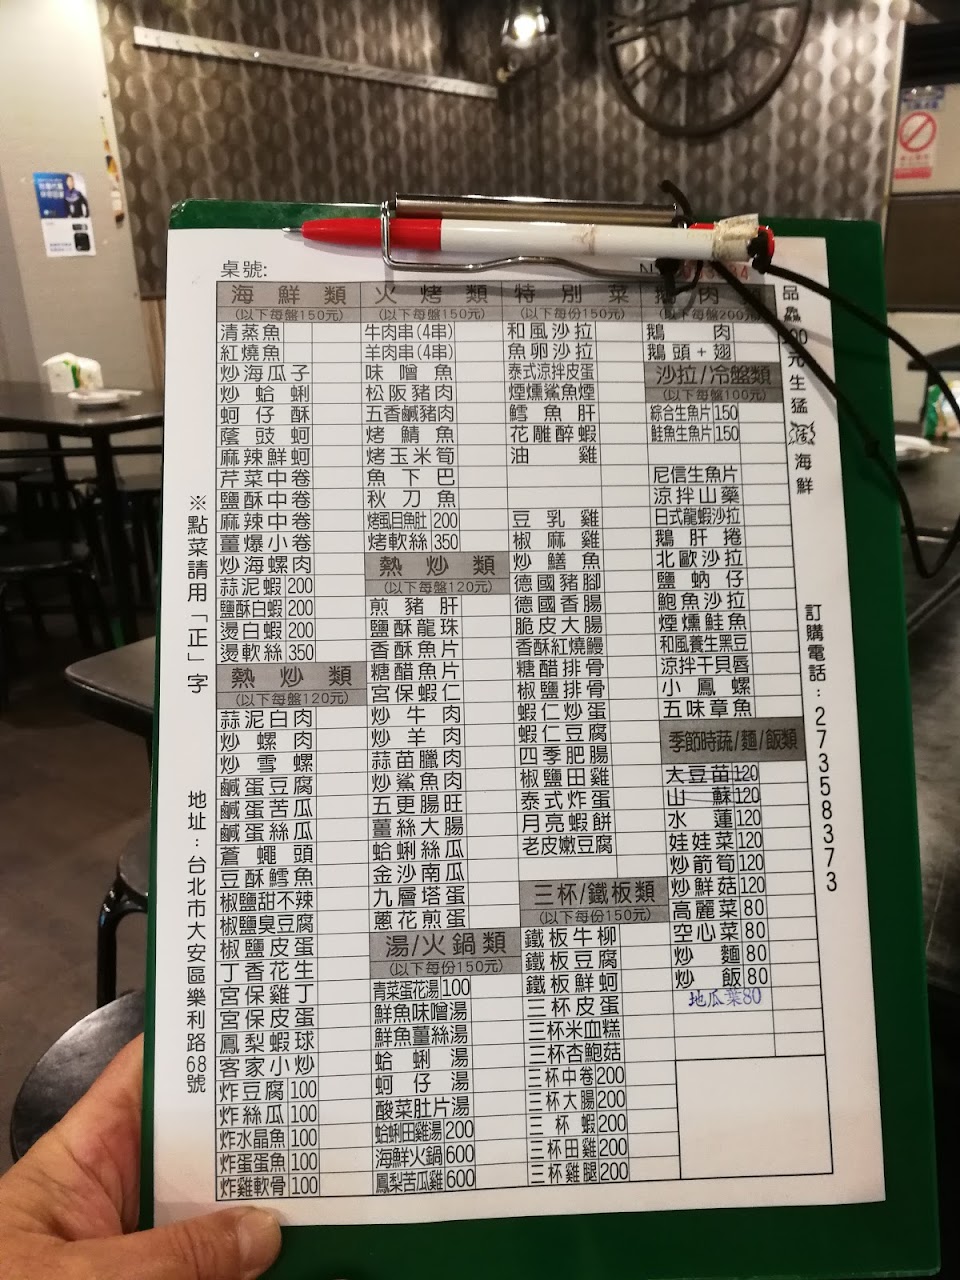 桌號:
海鮮類
(以下每盤150元)
清蒸魚
紅燒魚
炒海瓜子
炒蛤蜊
蚵仔酥
蔭豉蚵
麻辣鮮蚵
芹菜中卷
鹽酥中卷
麻辣中卷
薑爆小卷
炒海螺肉
蒜泥蝦 200
鹽酥白蝦 200
燙白蝦 200
燙軟絲 350
熱炒類
(以下每盤120元)
蒜泥白肉
炒螺肉
炒雪螺
鹹蛋豆腐
鹹蛋苦瓜
鹹蛋絲瓜
蒼蠅頭
豆酥鱈魚
椒鹽甜不辣
椒鹽臭豆腐
椒鹽皮蛋
丁香花生
宮保雞丁
宮保皮蛋
鳳梨蝦球
客家小炒
炸豆腐 100
炸絲瓜 100
炸水晶魚 100
炸蛋蛋魚 100
炸雞軟骨 100
火烤類
(以下每盤150元)
牛肉串(4串)
羊肉串(4串)
味噌魚
松阪豬肉
五香鹹豬肉
烤鯖魚
烤玉米筍
魚下巴
秋刀魚
烤虱目魚肚 200
烤軟絲 350
熱炒類
(以下每盤120元)
煎豬肝
鹽酥龍珠
香酥魚片
糖醋魚片
宮保蝦仁
炒牛肉
炒羊肉
蒜苗臘肉
炒鯊魚肉
五更腸旺
薑絲大腸
蛤蜊絲瓜
金沙南瓜
九層塔蛋
蔥花煎蛋
湯/火鍋類
(以下每份150元)
青菜蛋花湯 100
鮮魚味噌湯
鮮魚薑絲湯
蛤蜊湯
蚵仔湯
酸菜肚片湯
蛤蜊田雞湯 200
海鮮火鍋 600
鳳梨苦瓜雞 600
特別菜
(以下每份150元)
和風沙拉
魚卵沙拉
泰式涼拌皮蛋
煙燻鯊魚煙
鱈魚肝
花雕醉蝦
油雞
豆乳雞
椒麻雞
炒鱔魚
德國豬腳
德國香腸
脆皮大腸
香酥紅燒鰻
糖醋排骨
椒鹽排骨
蝦仁炒蛋
蝦仁豆腐
四季肥腸
椒鹽田雞
泰式炸蛋
月亮蝦餅
老皮嫩豆腐
三杯/鐵板類
(以下每份150元)
鐵板牛柳
鐵板豆腐
鐵板鮮蚵
三杯皮蛋
三杯米血糕
三杯杏鮑菇
三杯中卷 200
三杯大腸 200
三杯蝦 200
三杯田雞 200
三杯雞腿 200
鵝肉類
(以下每盤200元)
鵝肉
鵝頭+翅
沙拉/冷盤類
(以下每盤100元)
綜合生魚片 150
鮭魚生魚片 150
尼信生魚片
涼拌山藥
日式龍蝦沙拉
鵝肝捲
北歐沙拉
鹽蚋仔
鮑魚沙拉
煙燻鮭魚
和風養生黑豆
涼拌干貝唇
小鳳螺
五味章魚
季節時蔬/麵/飯類
大豆苗 120
山蘇 120
水蓮 120
娃娃菜 120
炒箭筍 120
炒鮮菇 120
高麗菜 80
空心菜 80
炒麵 80
炒飯 80
地瓜葉80
※點菜請用「正」字
地址:台北市大安區樂利路68號
元生猛活海鮮
訂購電話:27358373